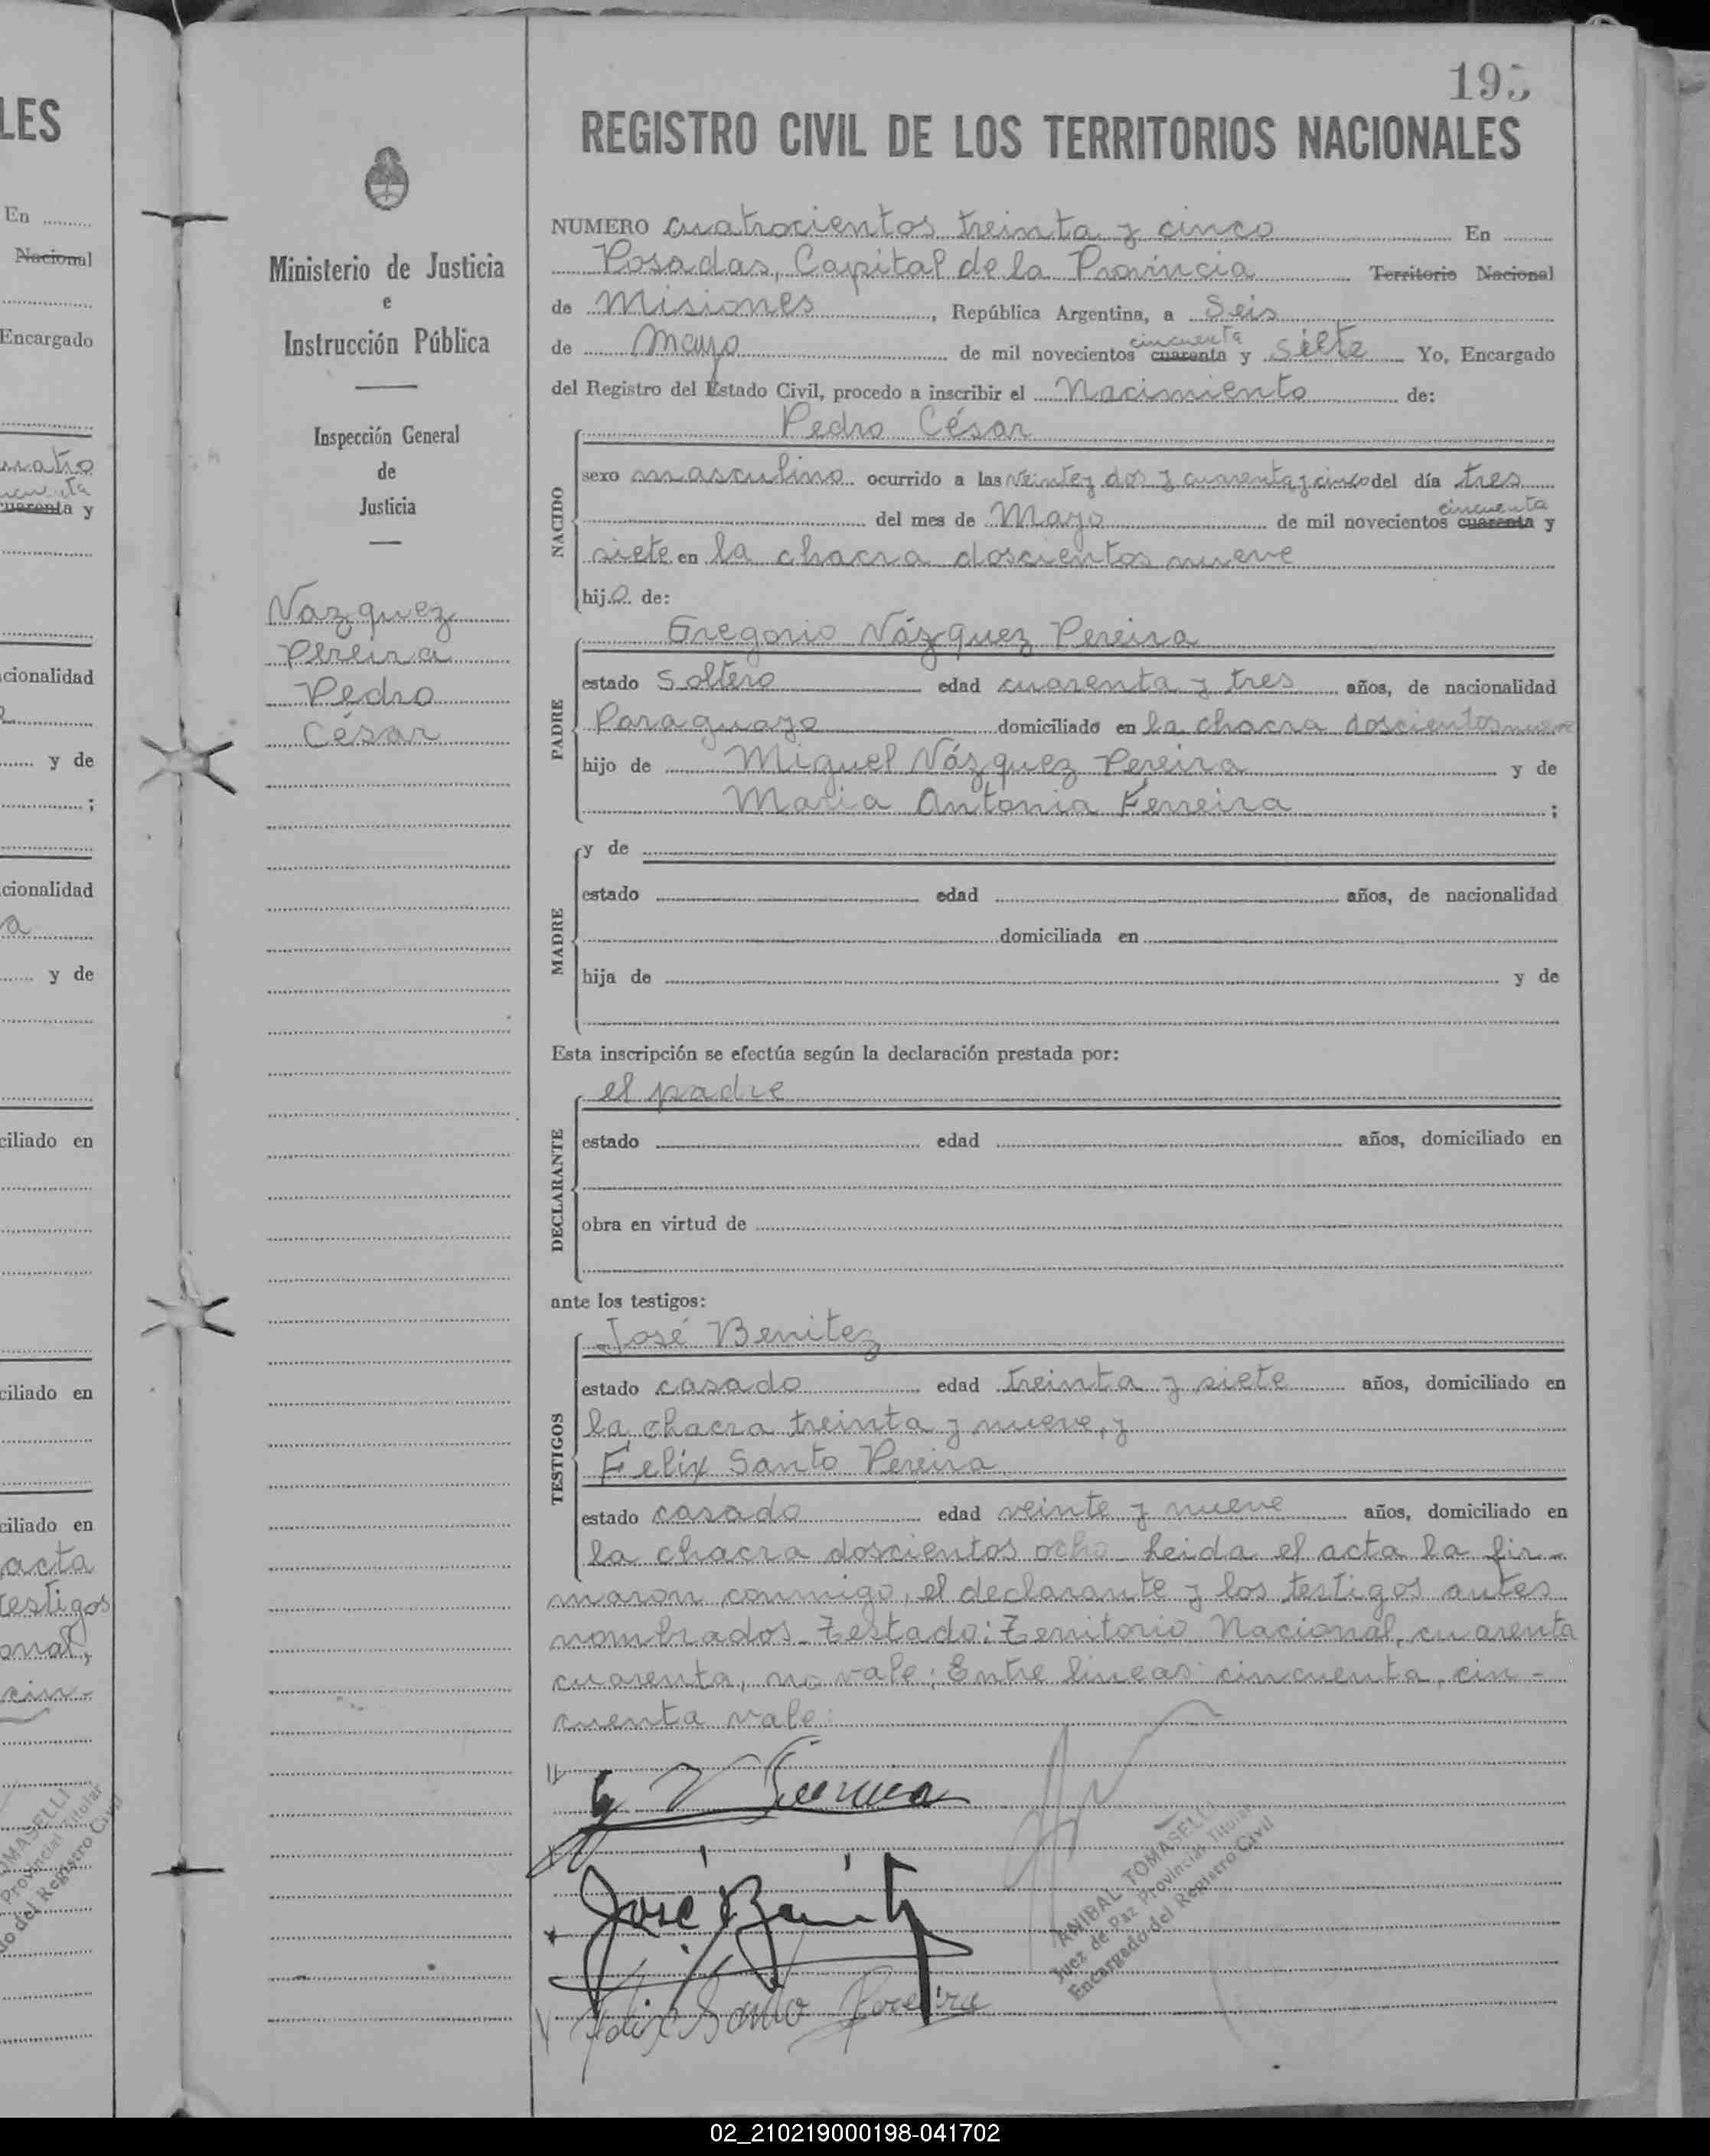 LES
En
Nacional
Encargado
cuarenta y
cionalidad
y de
;
cionalidad
a
y de
ciliado en
ciliado en
ciliado en
acta
testigos
onal,
cin-
TOMASELLI
Provincial Titular
do del Registro Civil
Ministerio de Justicia
e
Instrucción Pública
Inspección General
de
Justicia
Vazquez
Pereira
Pedro
César
195
REGISTRO CIVIL DE LOS TERRITORIOS NACIONALES
NUMERO cuatrocientos treinta y cinco En
Posadas, Capital de la Provincia Territorio Nacional
de Misiones, República Argentina, a Seis
de Mayo de mil novecientos cincuenta cuarenta y siete Yo, Encargado
del Registro del Estado Civil, procedo a inscribir el Nacimiento de:
Pedro César
NACIDO
sexo masculino ocurrido a las veinte y dos y cuarenta y cinco del día tres
del mes de Mayo de mil novecientos cincuenta cuarenta y
siete en la chacra doscientos nueve
hijo de:
Gregorio Vázquez Pereira
PADRE
estado soltero edad cuarenta y tres años, de nacionalidad
Paraguayo domiciliado en la chacra doscientos nueve
hijo de Miguel Vázquez Pereira y de
Maria Antonia Ferreira ;
MADRE
y de
estado edad años, de nacionalidad
domiciliada en
hija de y de
Esta inscripción se efectúa según la declaración prestada por:
el padre
DECLARANTE
estado edad años, domiciliado en
obra en virtud de
ante los testigos:
José Benitez
TESTIGOS
estado casado edad treinta y siete años, domiciliado en
la chacra treinta y nueve, y
Felix Santo Pereira
estado casado edad veinte y nueve años, domiciliado en
la chacra doscientos ocho Leida el acta la fir-
maron conmigo, el declarante y los testigos antes
nombrados. Testado: Territorio Nacional, cuarenta
cuarenta, no vale; Entre lineas: cincuenta, cin-
cuenta vale:
José Benitez
Felix Santo Pereira
ANIBAL TOMASELLI
Juez de Paz Provincial Titular
Encargado del Registro Civil
02_210219000198-041702